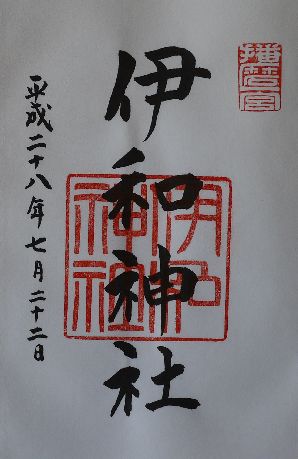 播磨一宮
伊和神社
伊和神社
平成二十八年七月二十二日